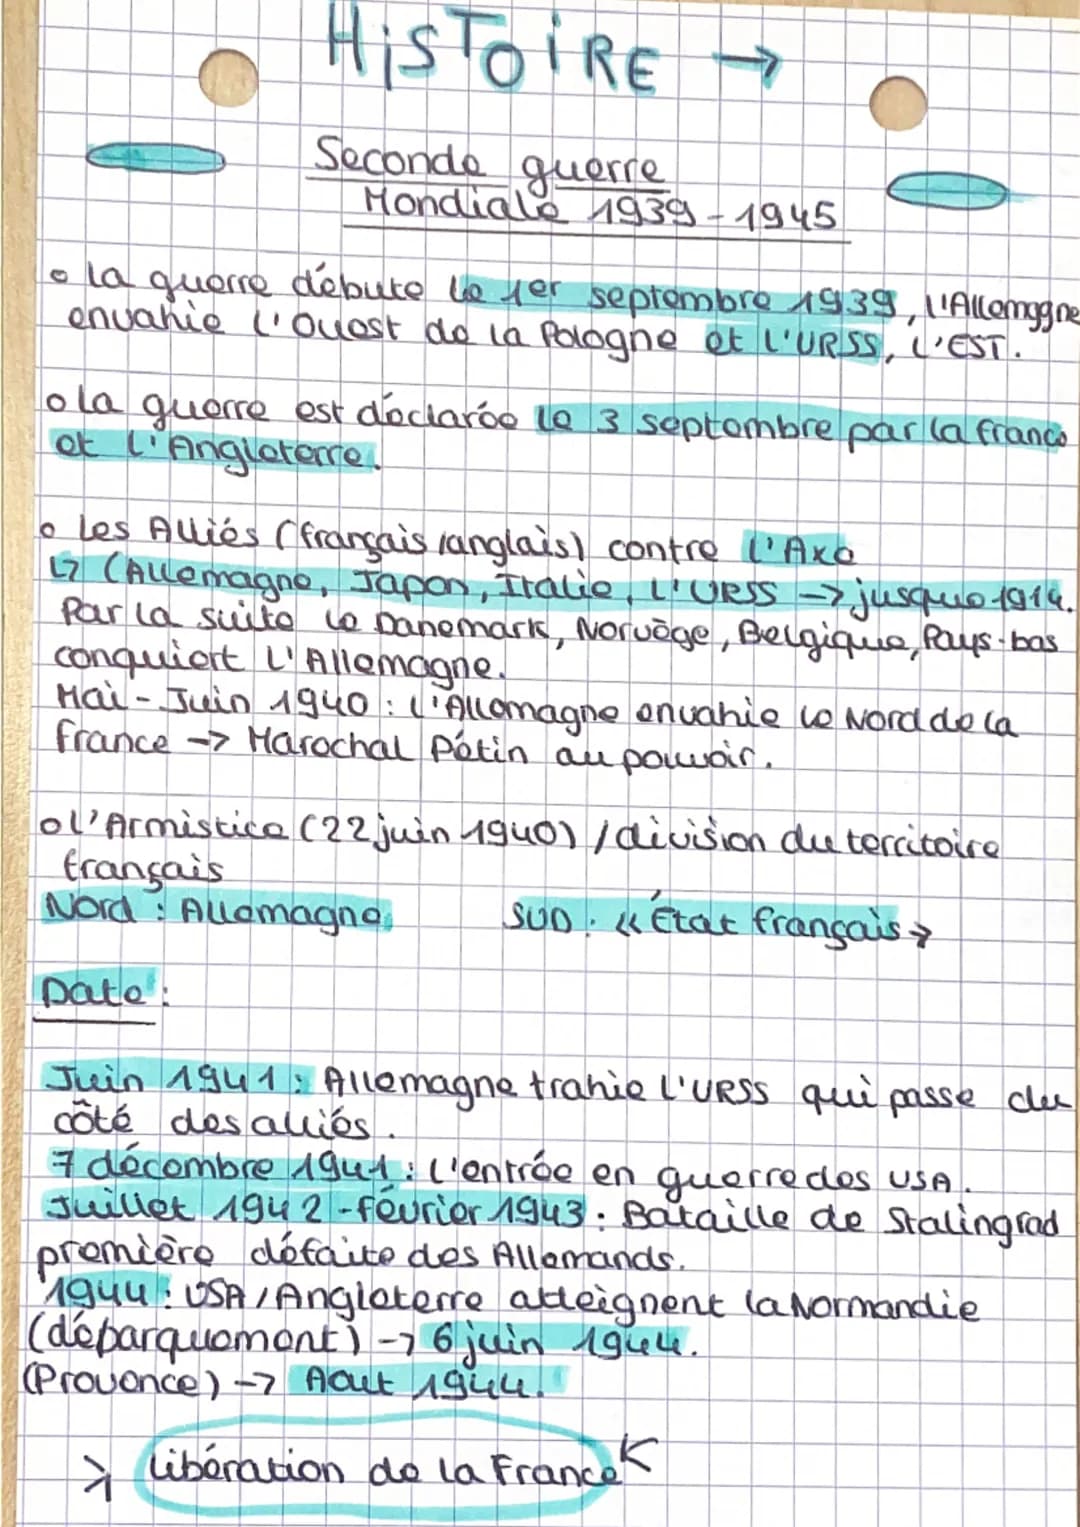 HiSTOiRE →
Seconde guerre
Mondiale 1939-1945
• la guerre débute le 1er septembre 1939, l'Allemagne
envahie l'Ouest de la Pologne et l'URSS, l'EST.
• la guerre est déclarée le 3 septembre par la france
et l'Angleterre.
• les Alliés (français/anglais) contre l'Axe
↳ (Allemagne, Japon, Italie, L'URSS → jusque 1914.
Par la suite le Danemark, Norvège, Belgique, Pays-bas
conquiert L'Allemagne.
Mai - Juin 1940 : l'Allemagne envahie le Nord de la
france → Marechal Pétin au pouvoir.
• l'Armistice (22 juin 1940) / division du territoire
français
Nord : Allemagne SUD : « État français »
Date :
Juin 1941 : Allemagne trahie l'URSS qui passe du
côté des alliés.
7 décembre 1941 : l'entrée en guerre des USA.
Juillet 1942 - février 1943 : Bataille de Stalingrad
première défaite des Allemands.
1944 : USA / Angleterre atteignent la Normandie
(déparquement) → 6 juin 1944.
(Provence) → Aout 1944.
libération de la France